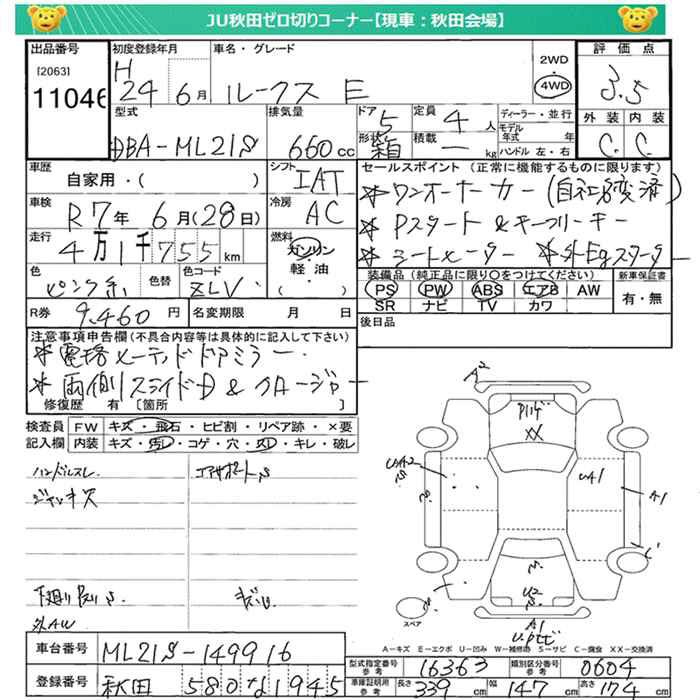 JU秋田ゼロ切りコーナー【現車：秋田会場】
出品番号 初度登録年月 車名・グレード 評価点
[2063]
11046
H 24年 6月 ルークス E 2WD 4WD 3.5
型式 排気量 ドア 定員 ディーラー・並行 外装 内装
DBA-ML21S 660cc 5 4人 モデル年式 年 C. C.
形状 箱 積載 ー kg ハンドル 左・右
車歴 自家用・( ) シフト IAT
セールスポイント (正常に機能するものに限ります)
*ワンオーナーカー(自社名変済)
車検 R7年6月(28日) 冷房 AC
*Pスタート&キーフリーキー
走行 4万1千755km 燃料 ガソリン 軽油・( )
*シートヒーター *外Egスターター
色 ピンク系 色替 色コード ZLV
装備品 (純正品に限り〇をつけてください) 新車保証書
PS PW ABS エアB AW 有・無
SR ナビ TV カワ
R券 9.460円 名変期限 月 日
後日品
注意事項申告欄 (不具合内容等は具体的に記入して下さい)
*電格ヒーテッドドアミラー
*両側スライドD&クロージャー
修復歴 有 [箇所 ]
検査員記入欄 FW キズ・飛石・ヒビ割・リペア跡・×要
内装 キズ・汚レ・コゲ・穴・スレ・キレ・破レ
ハンドルスレ
ジャッキ欠
下廻り
A2
XX
A1
U2
A1
スペア
A－キズ E－エクボ U－凹み W－補修跡 S－サビ C－腐食 XX－交換済
車台番号 ML21S-149916
型式指定番号 参考 16363 類別区分番号 参考 0604
登録番号 秋田 580 な 1945
車庫証明用 参考 長さ 339cm 幅 147cm 高さ 174cm